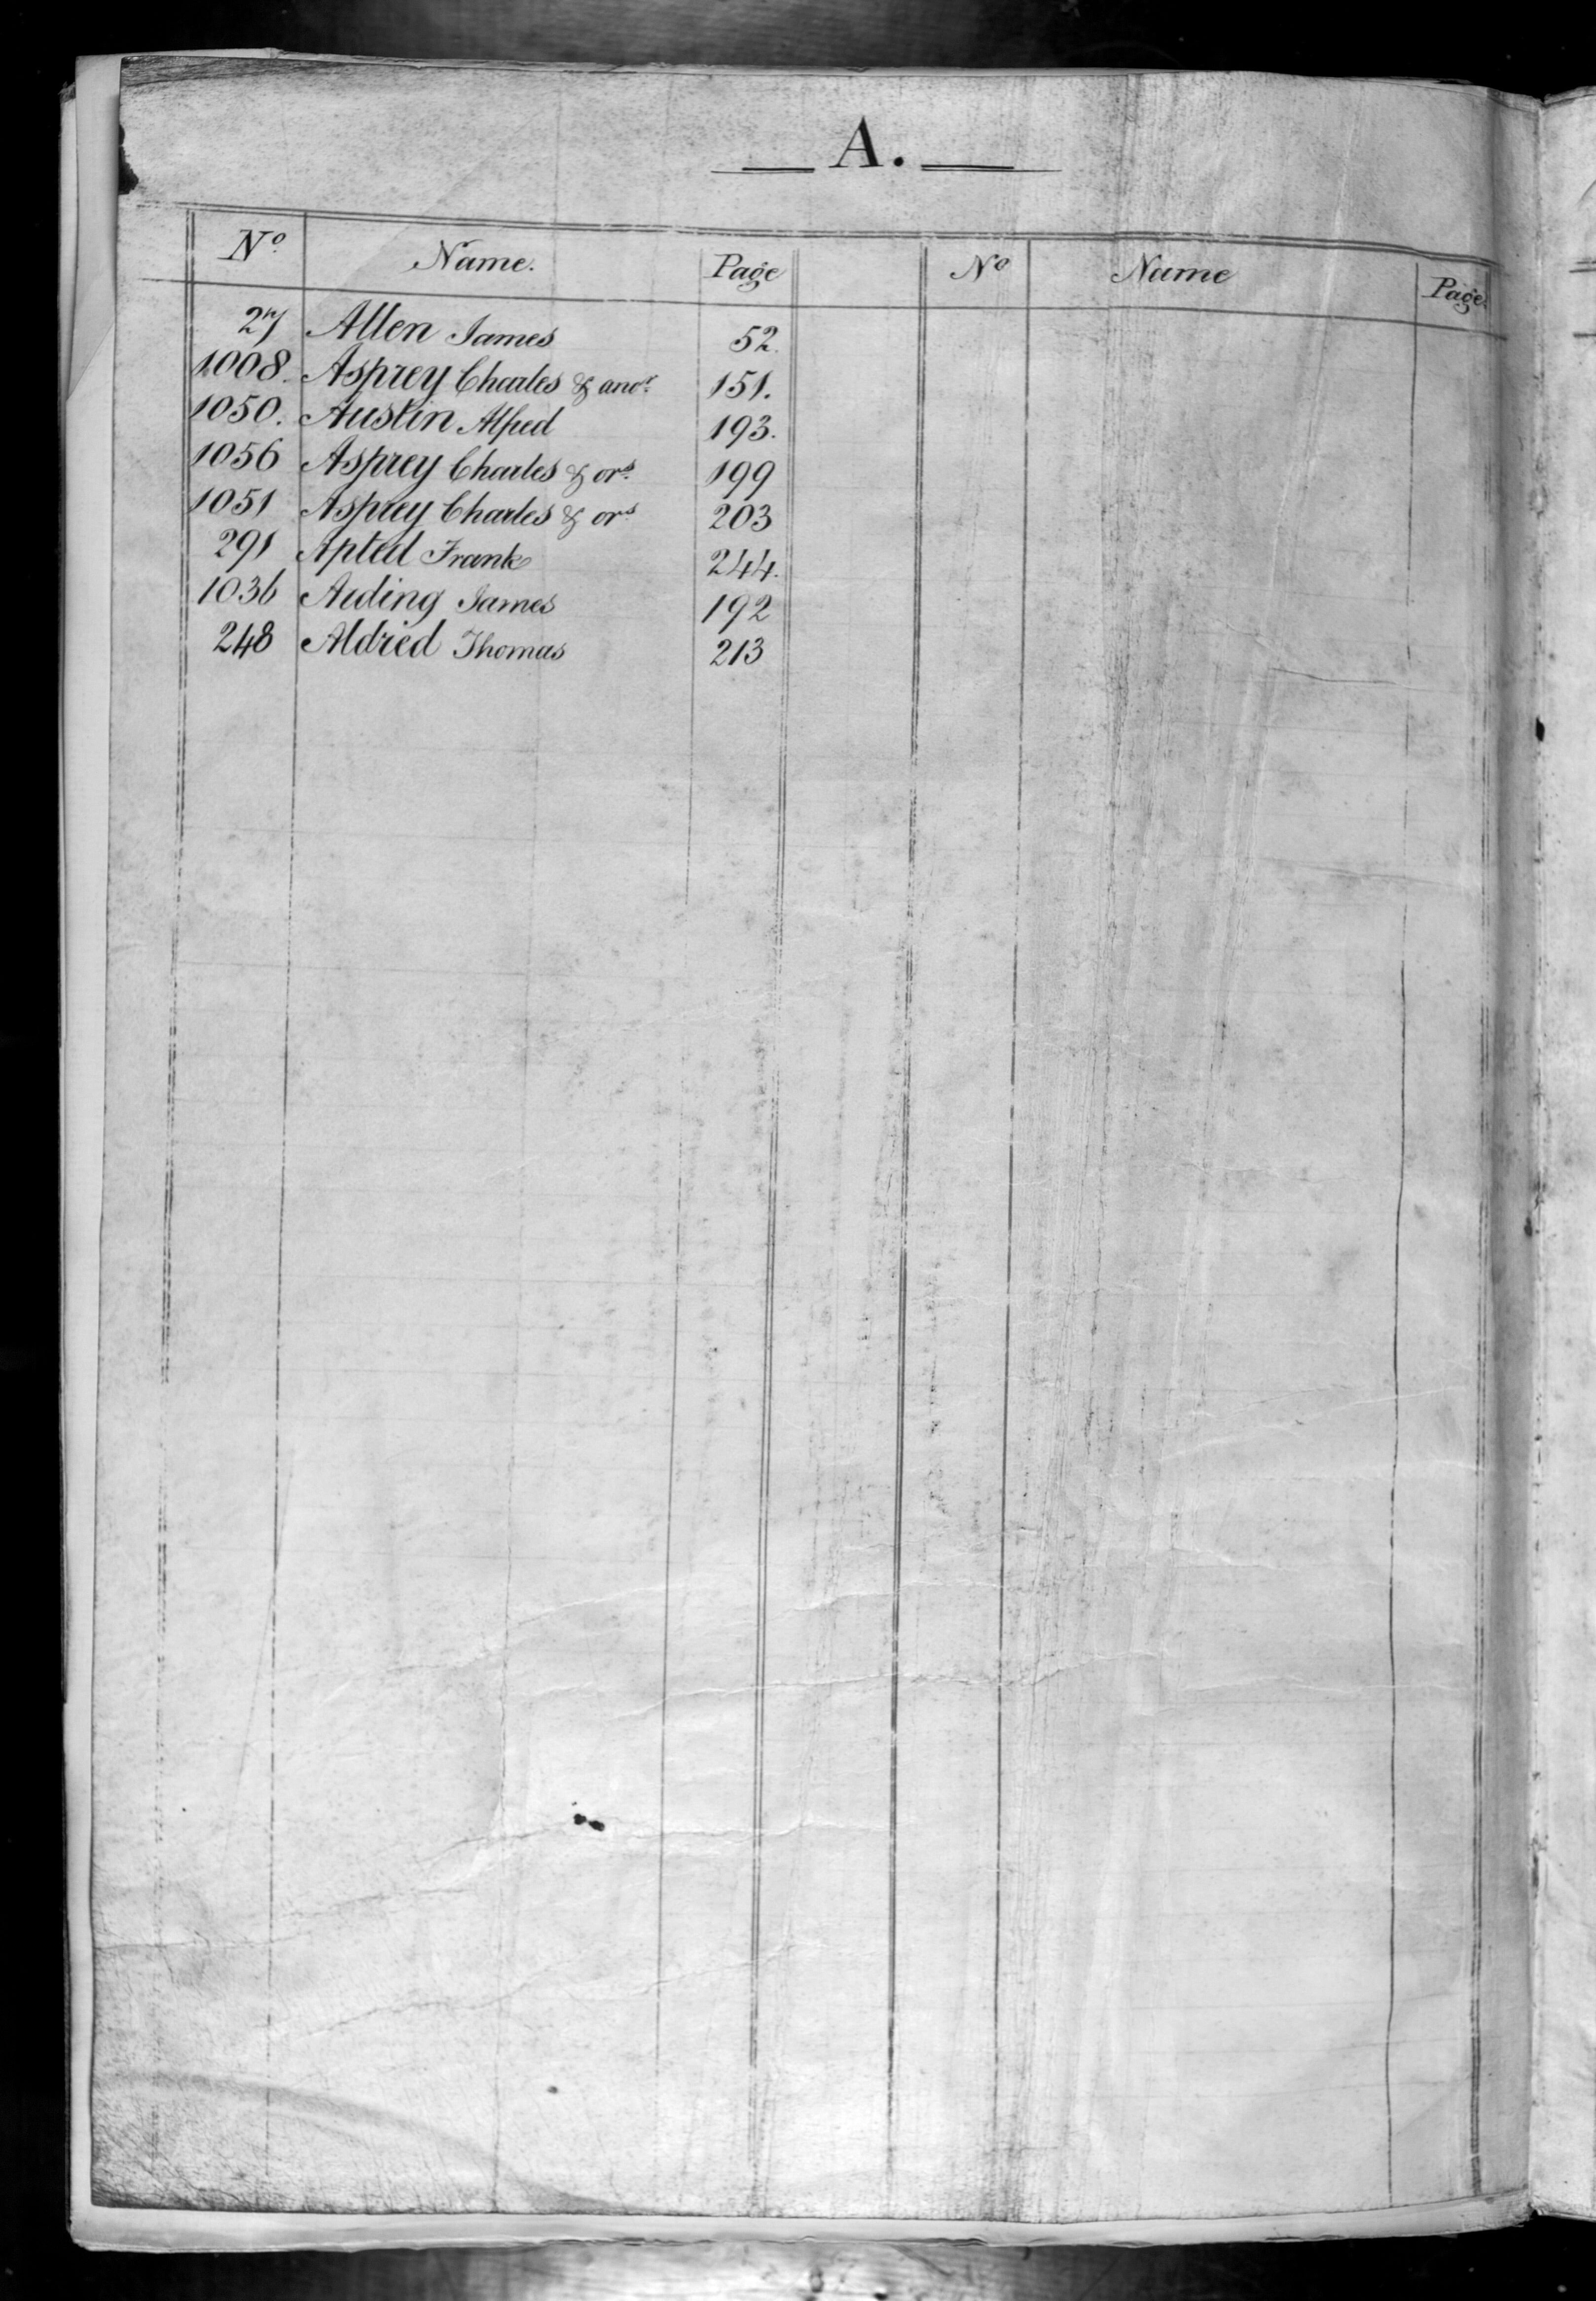 A.
No. Name. Page No Name Page.
27 Allen James 52.
1008. Asprey Charles & anor. 151.
1050. Austin Alfred 193.
1056 Asprey Charles & ors. 199
1051 Asprey Charles & ors. 203
291 Apted Frank 244.
1036 James 192
248 Aldred Thomas 213